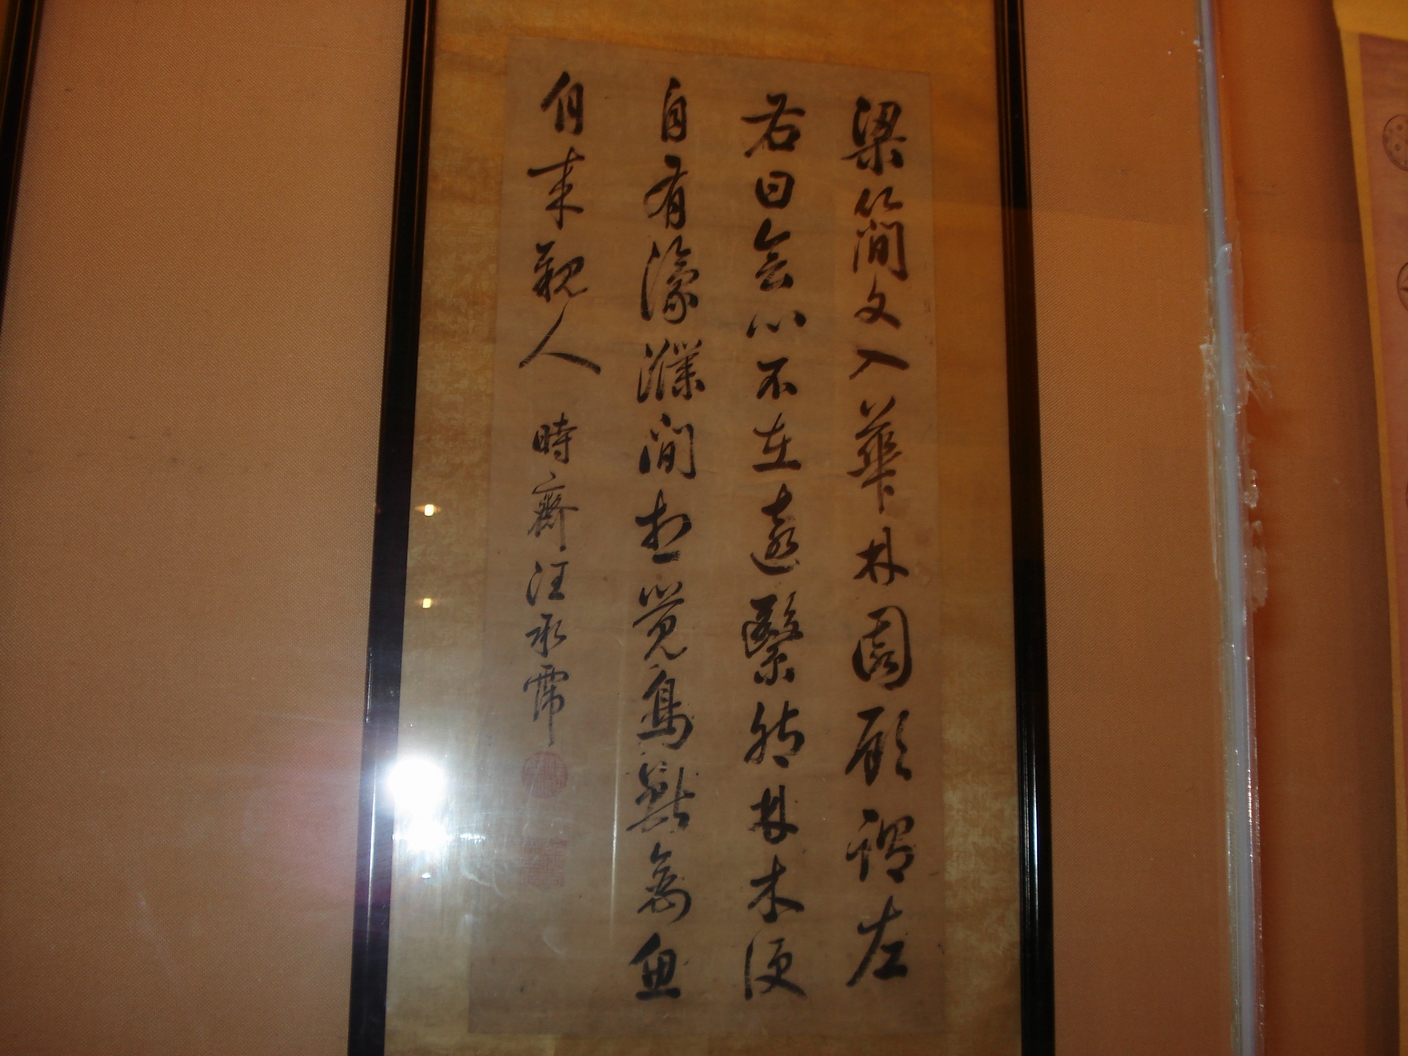 梁簡文入華林園顧謂左
右曰會心不在遠繄然林木便
自有濠濮間想覺鳥獸禽魚
自來親人 時齋汪承霈